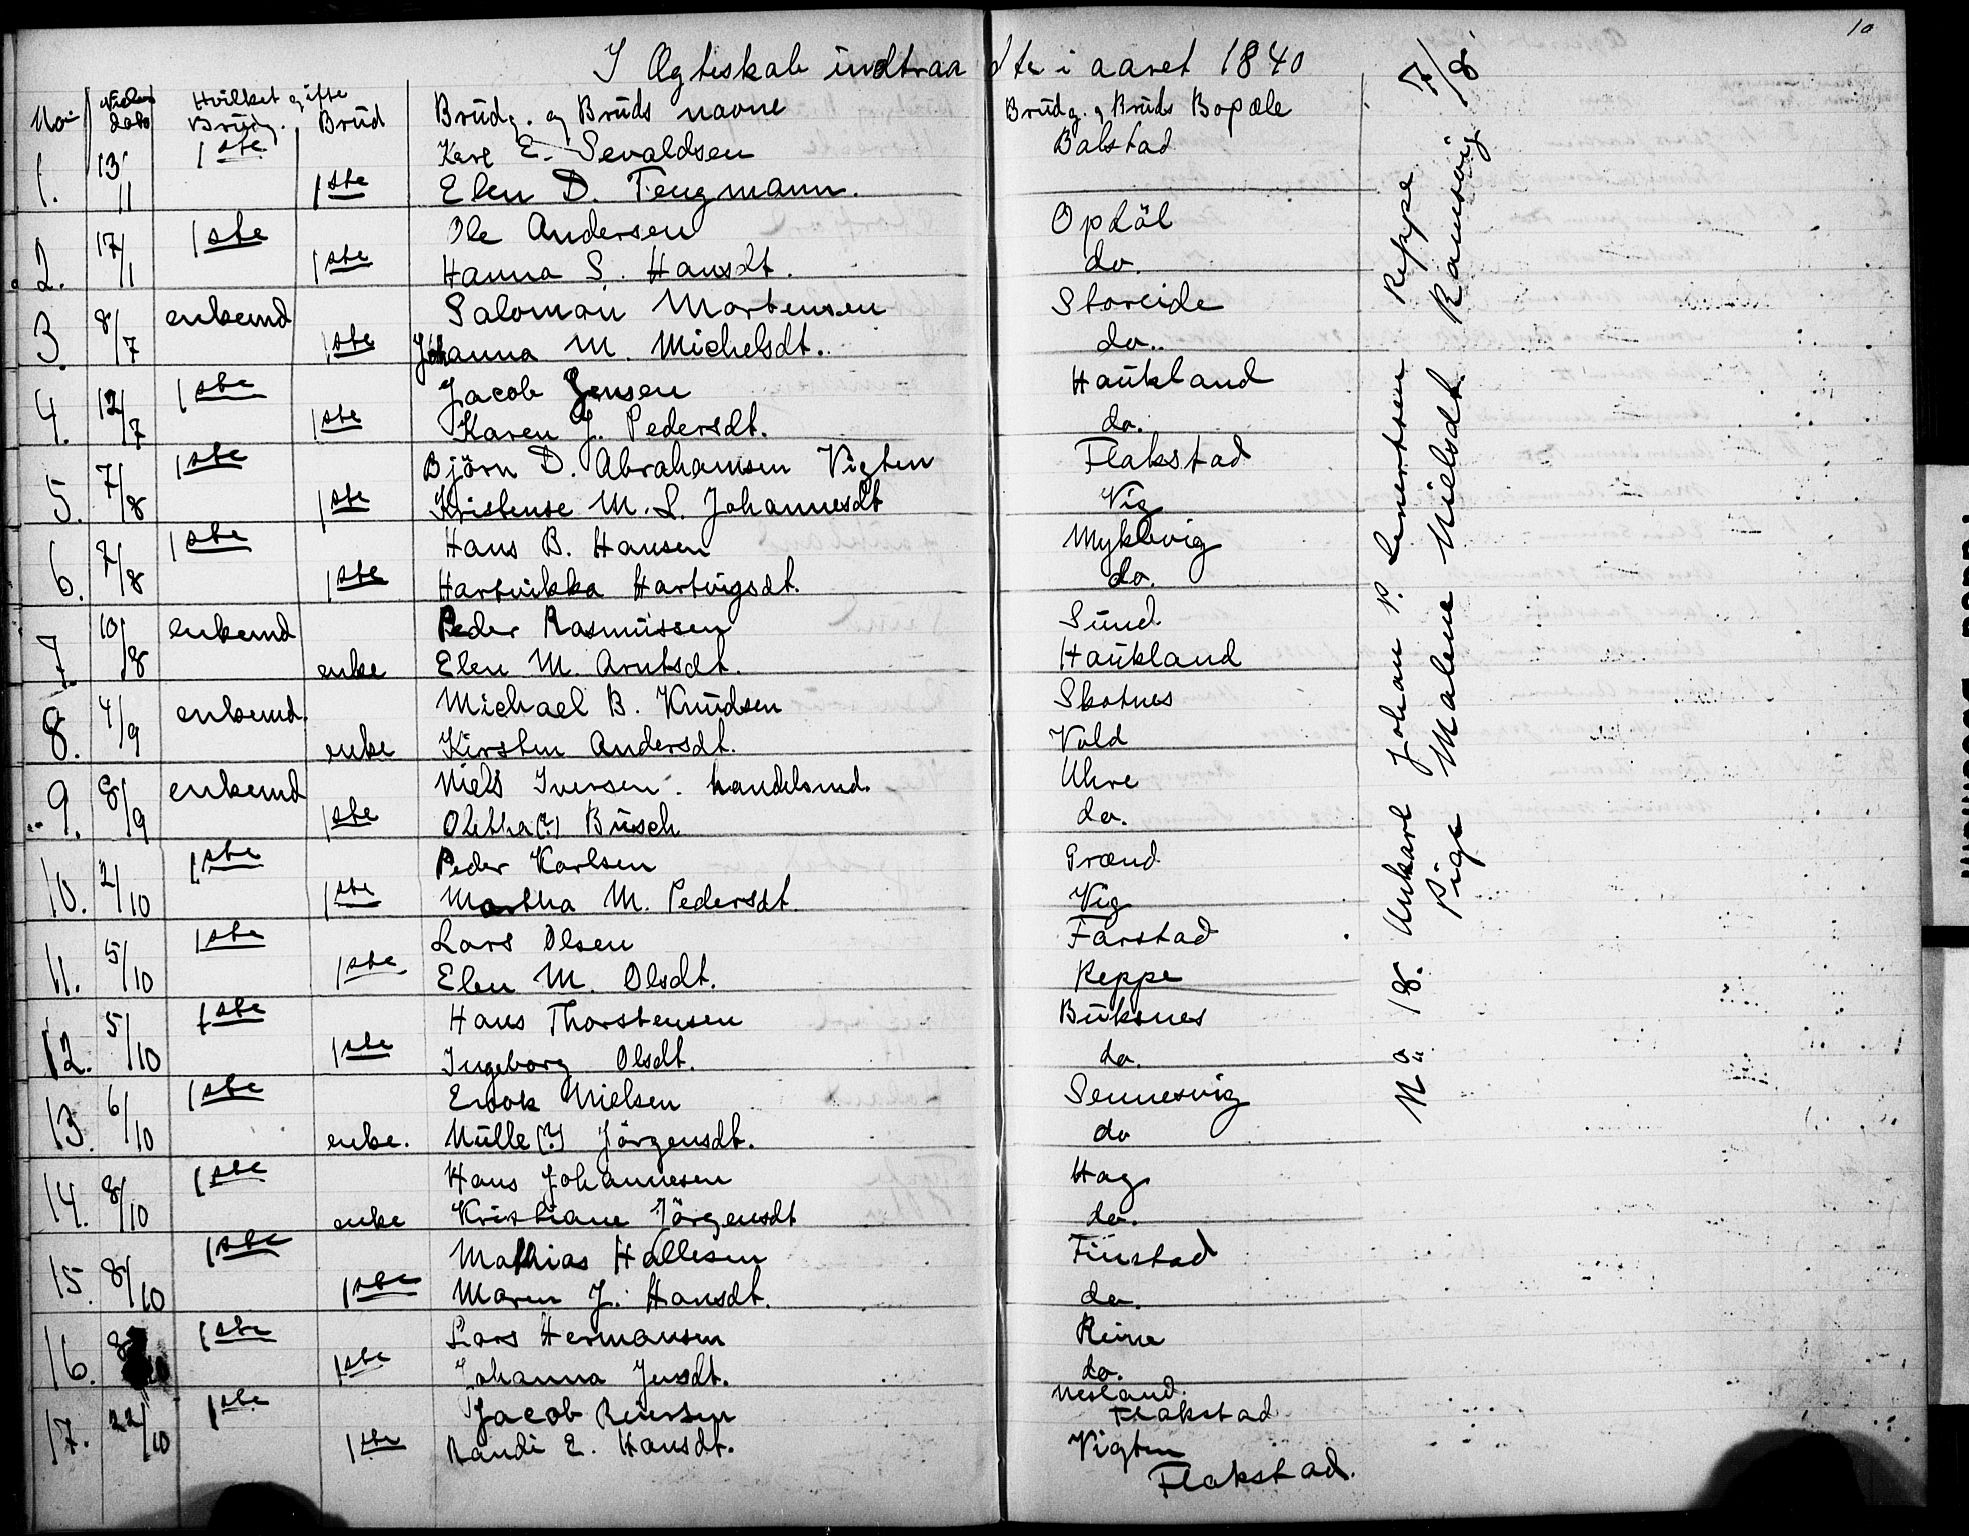 10
I Ægteskab indtraadte i aaret 1840
No Vielses dato Hvilket gifte Brüdg. Brüd Brüdg. og Brüds navne Brüdg. og Brüds Bopæle
1. 13/11 1ste Karl E. Sevaldsen Balstad
1ste Elen D. Fengmann.
2. 17/1 1ste Ole Andersen Opdöl
1ste Hanna S. Hansdt. do.
3. 8/7 enkemd Salomon Mortensen Storeide
1ste Johanna M. Michelsdt. do.
4. 12/7 1ste Jacob Jensen Haükland
1ste Karen J. Pedersdt. do.
5. 7/8 1ste Björn D. Abrahamsen Vigten Flakstad
1ste Kristense M. S. Johannesdt Vig
6. 7/8 1ste Hans B. Hansen Myklevig
1ste Hartvikka Hartvigsdt. do.
7 10/8 enkemd Peder Rasmüssen Sünd
enke Elen M. Arntsdt. Haükland
8. 4/9 enkemd. Michael B. Knüdsen Skotnes
enke Kirsten Andersdt. Vold
9. 8/9 enkemd Niels Iversen. handelsmd. Uhre
1ste Oletha (?) Büsch do.
10. 2/10 1ste Peder Karlsen Grænd
1ste Martha M. Pedersdt. Vig
11. 5/10 1ste Lars Olsen Farstad
1ste Elen M. Olsdt. Reppe
12. 5/10 1ste Hans Thorstensen Büksnes
1ste Ingeborg Olsdt. do.
13. 6/10 1ste Enok Nielsen Sennesvig
enke. Nülle (?) Jörgensdt. do
14. 8/10 1ste Hans Johannesen Hag
enke Kristiane Jörgensdt do.
15. 8/10 1ste Mathias Hallesen Finstad
1ste Maren J. Hansdt. do.
16. 8/10 1ste Lars Hermansen Reine
1ste Johanna Jensdt. do.
17. 22/10 1ste Jacob Reiersen Nesland. Flakstad
1ste Randi E. Hansdt. Vigten
Flakstad.
No 18. Unkarl Johan P. Lenertsen Reppe 7/8
Pige Malene Nielsdt. Ramsvig